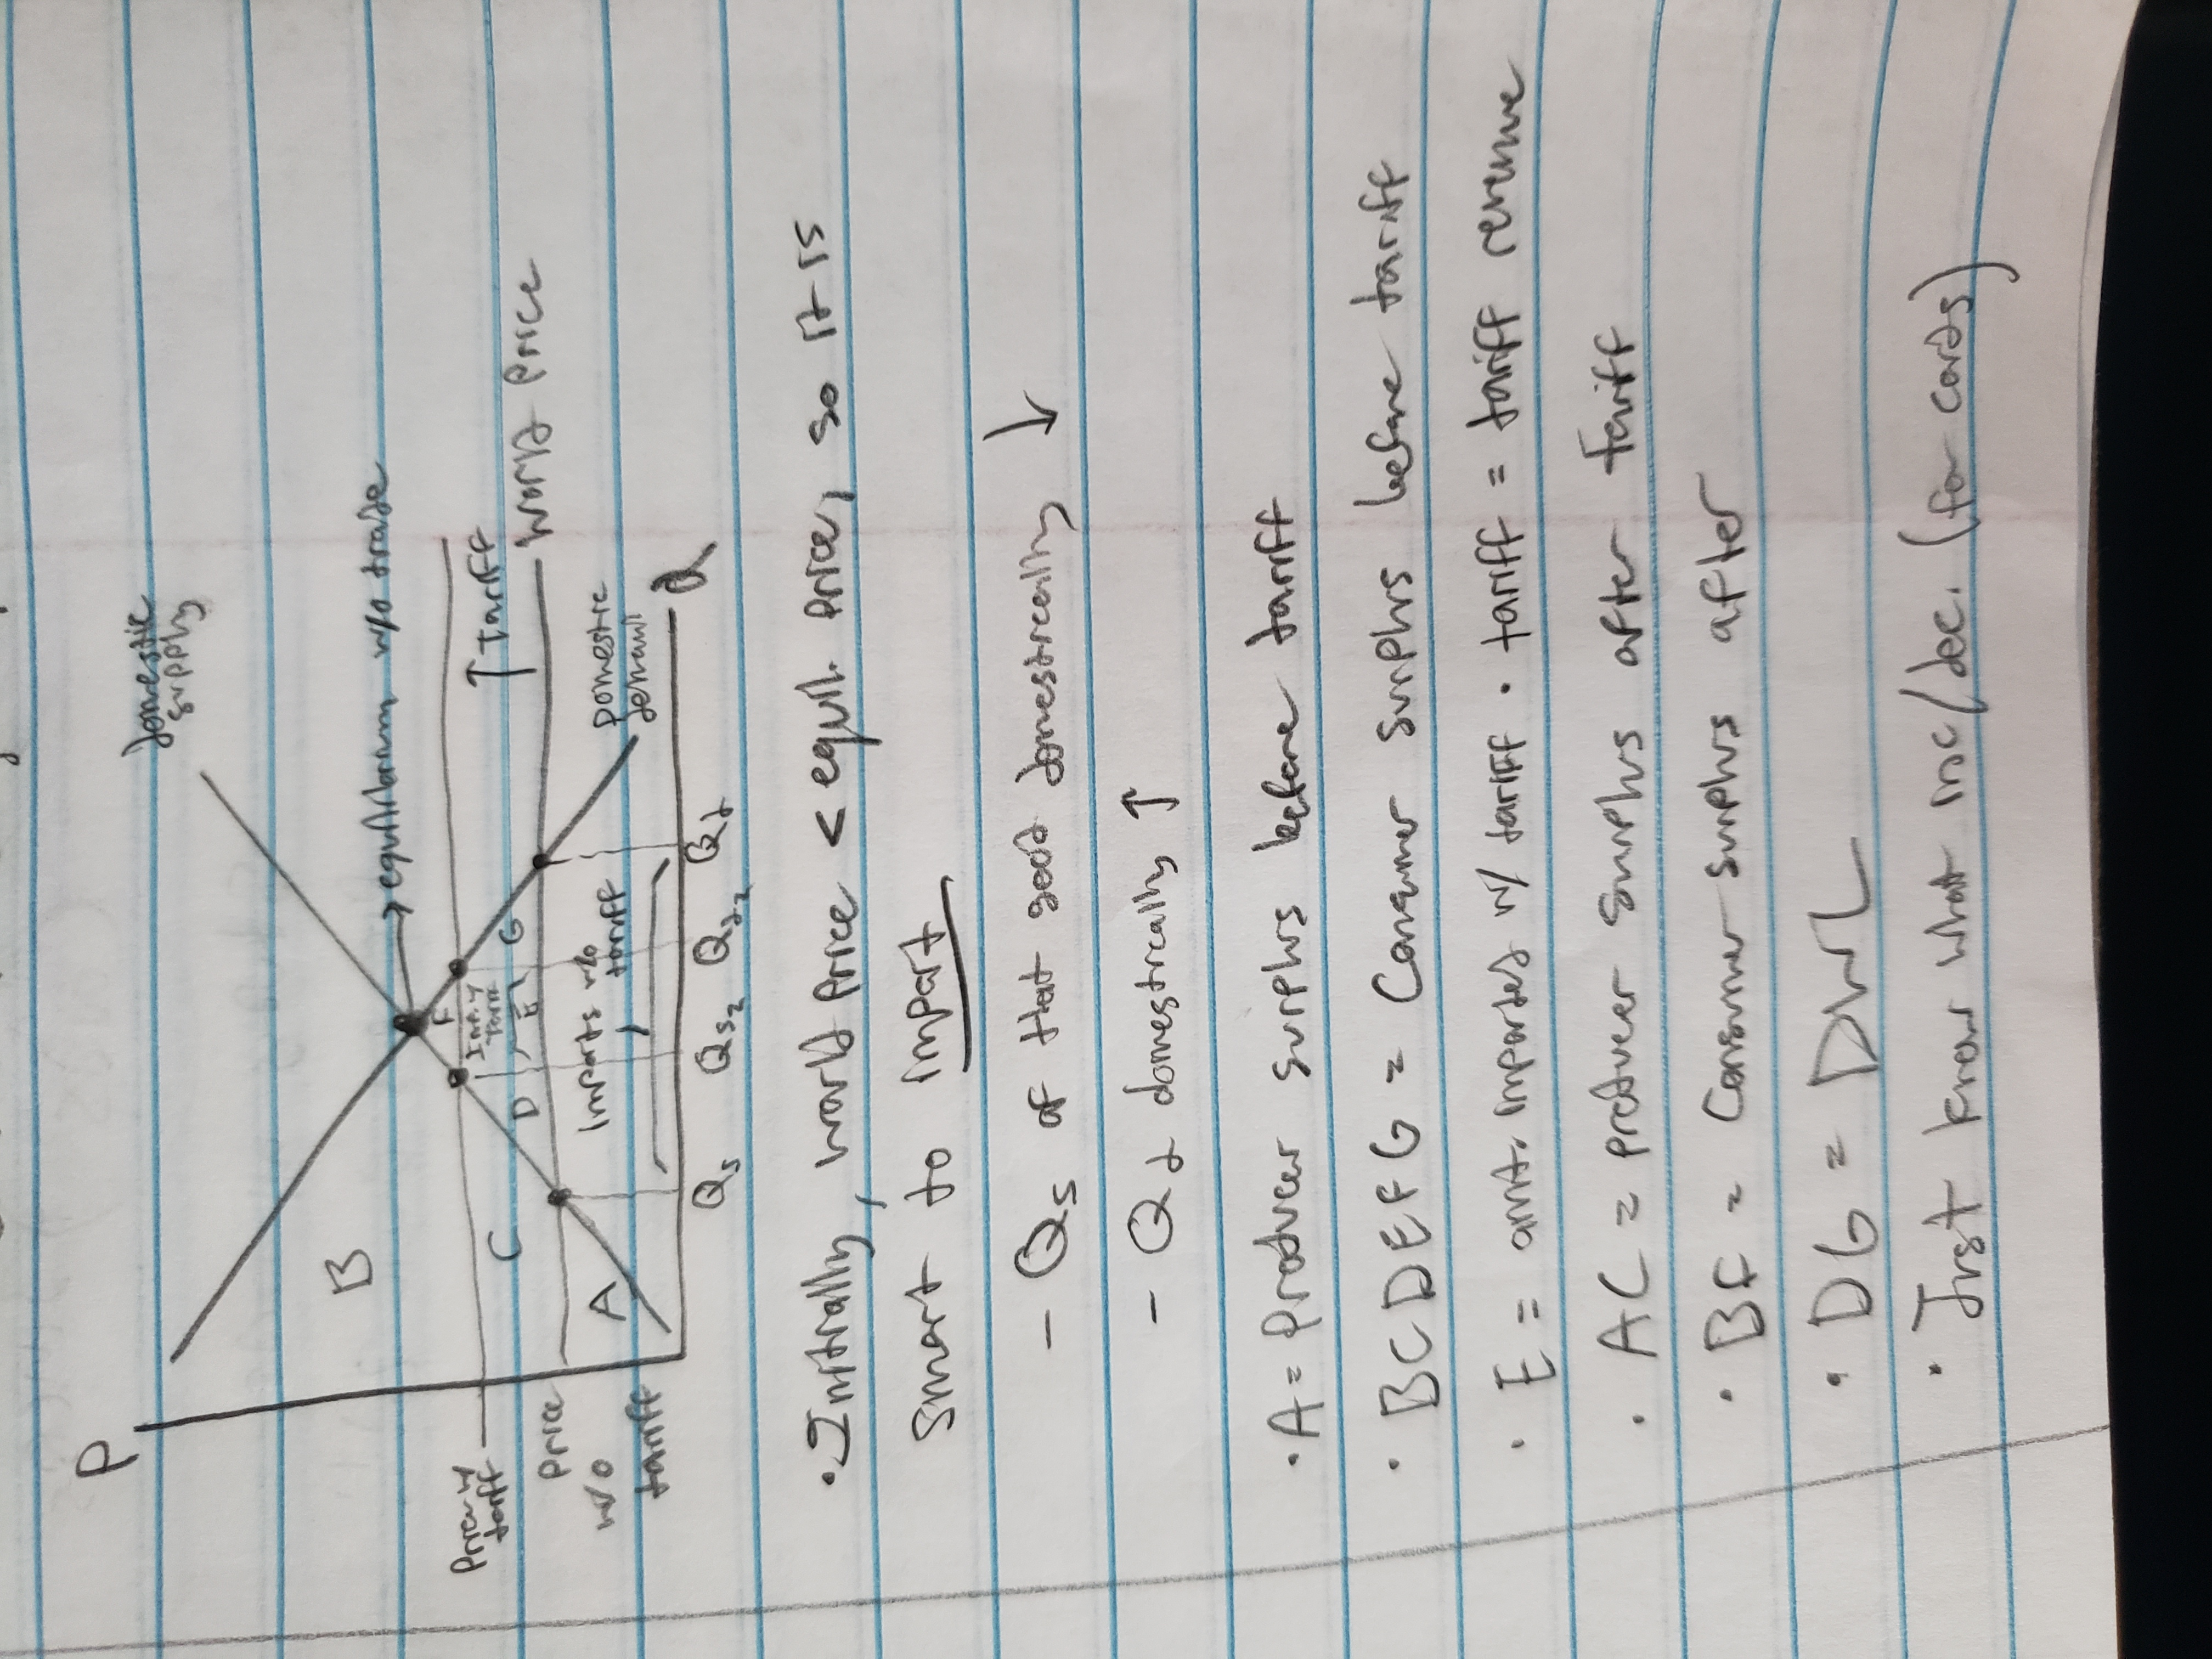 P
domestic
supply
B
→ equilibrium w/o trade
Price w/
tariff
F
Imp. w/
tariff
↑ Tariff
C
D
E
G
World Price
Price
w/o
tariff
A
Imports w/o
tariff
Domestic
demand
Qs
Qs2
Qd2
Qd
Q
• Initially, world price < equil. price, so it is
smart to import
- Qs of that good domestically ↓
- Qd domestically ↑
• A = Producer surplus before tariff
• BCDEFG = Consumer surplus before tariff
• E = amt. imported w/ tariff • tariff = tariff revenue
• AC = producer surplus after tariff
• BF = Consumer surplus after
• DG = DWL
• Just know what inc/dec. (for cards)